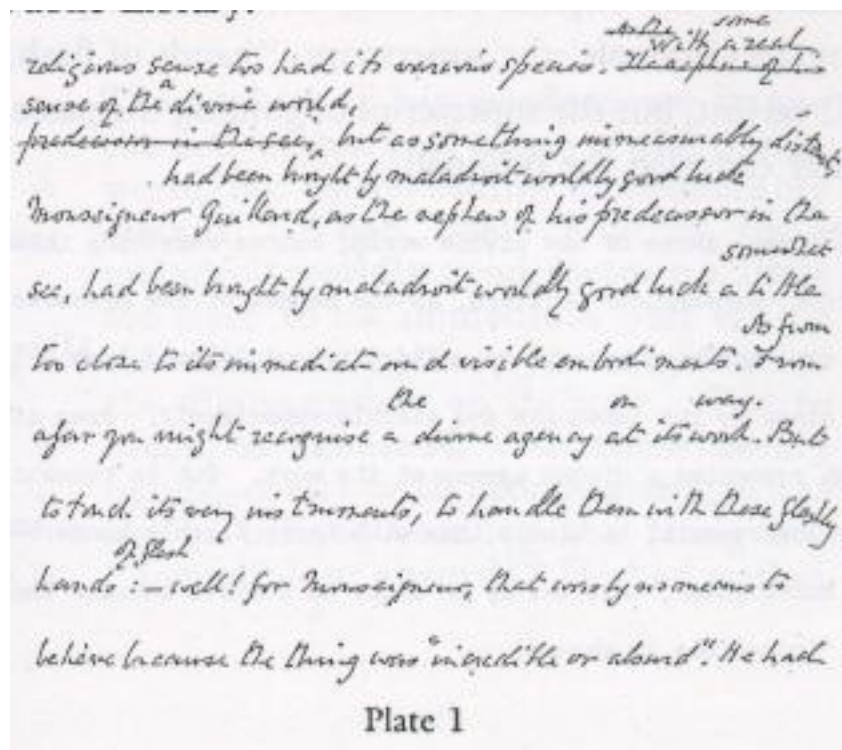 some
With a real
religious sense too had its various species. The nephew of his
sense of the divine world,
predecessor in the see, but as something immeasurably distant,
had been brought by maladroit worldly good luck
Monseigneur Guillard, as the nephew of his predecessor in the
somewhat
see, had been brought by maladroit worldly good luck a little
As from
too close to its immediate and visible embodiments. From
the on way.
afar you might recognise a divine agency at its work. But
to touch its very instruments, to handle them with these fleshly
of flesh
hands :— well! for Monseigneur, that was by no means to
believe because the thing was "incredible or absurd". He had
Plate 1